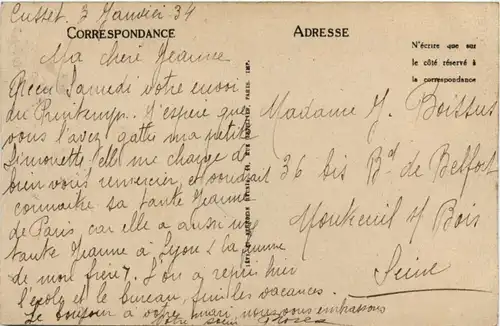 Cusset. 3 Janvier 34
CORRESPONDANCE
Ma chère Jeanne
Recu Samedi votre envoi
du Printemps. J'espère que
vous l'avez gatée ma petite
Simonette elle me charge de
bien vous remercier, et voudrait
connaitre sa tante Jeanne
de Paris, car elle a aussi une
tante Jeanne à Lyon (la femme
de mon frère). L'on a repris hier
l'école et le bureau, fini les vacances.
Le bonjour à votre mari, nous vous embrassons
Votre
ADRESSE
N'écrire que sur
le côté réservé à
la correspondance
Madame J. Boissus
36 bis Bd de Belfort
Montreuil s/ Bois
Seine